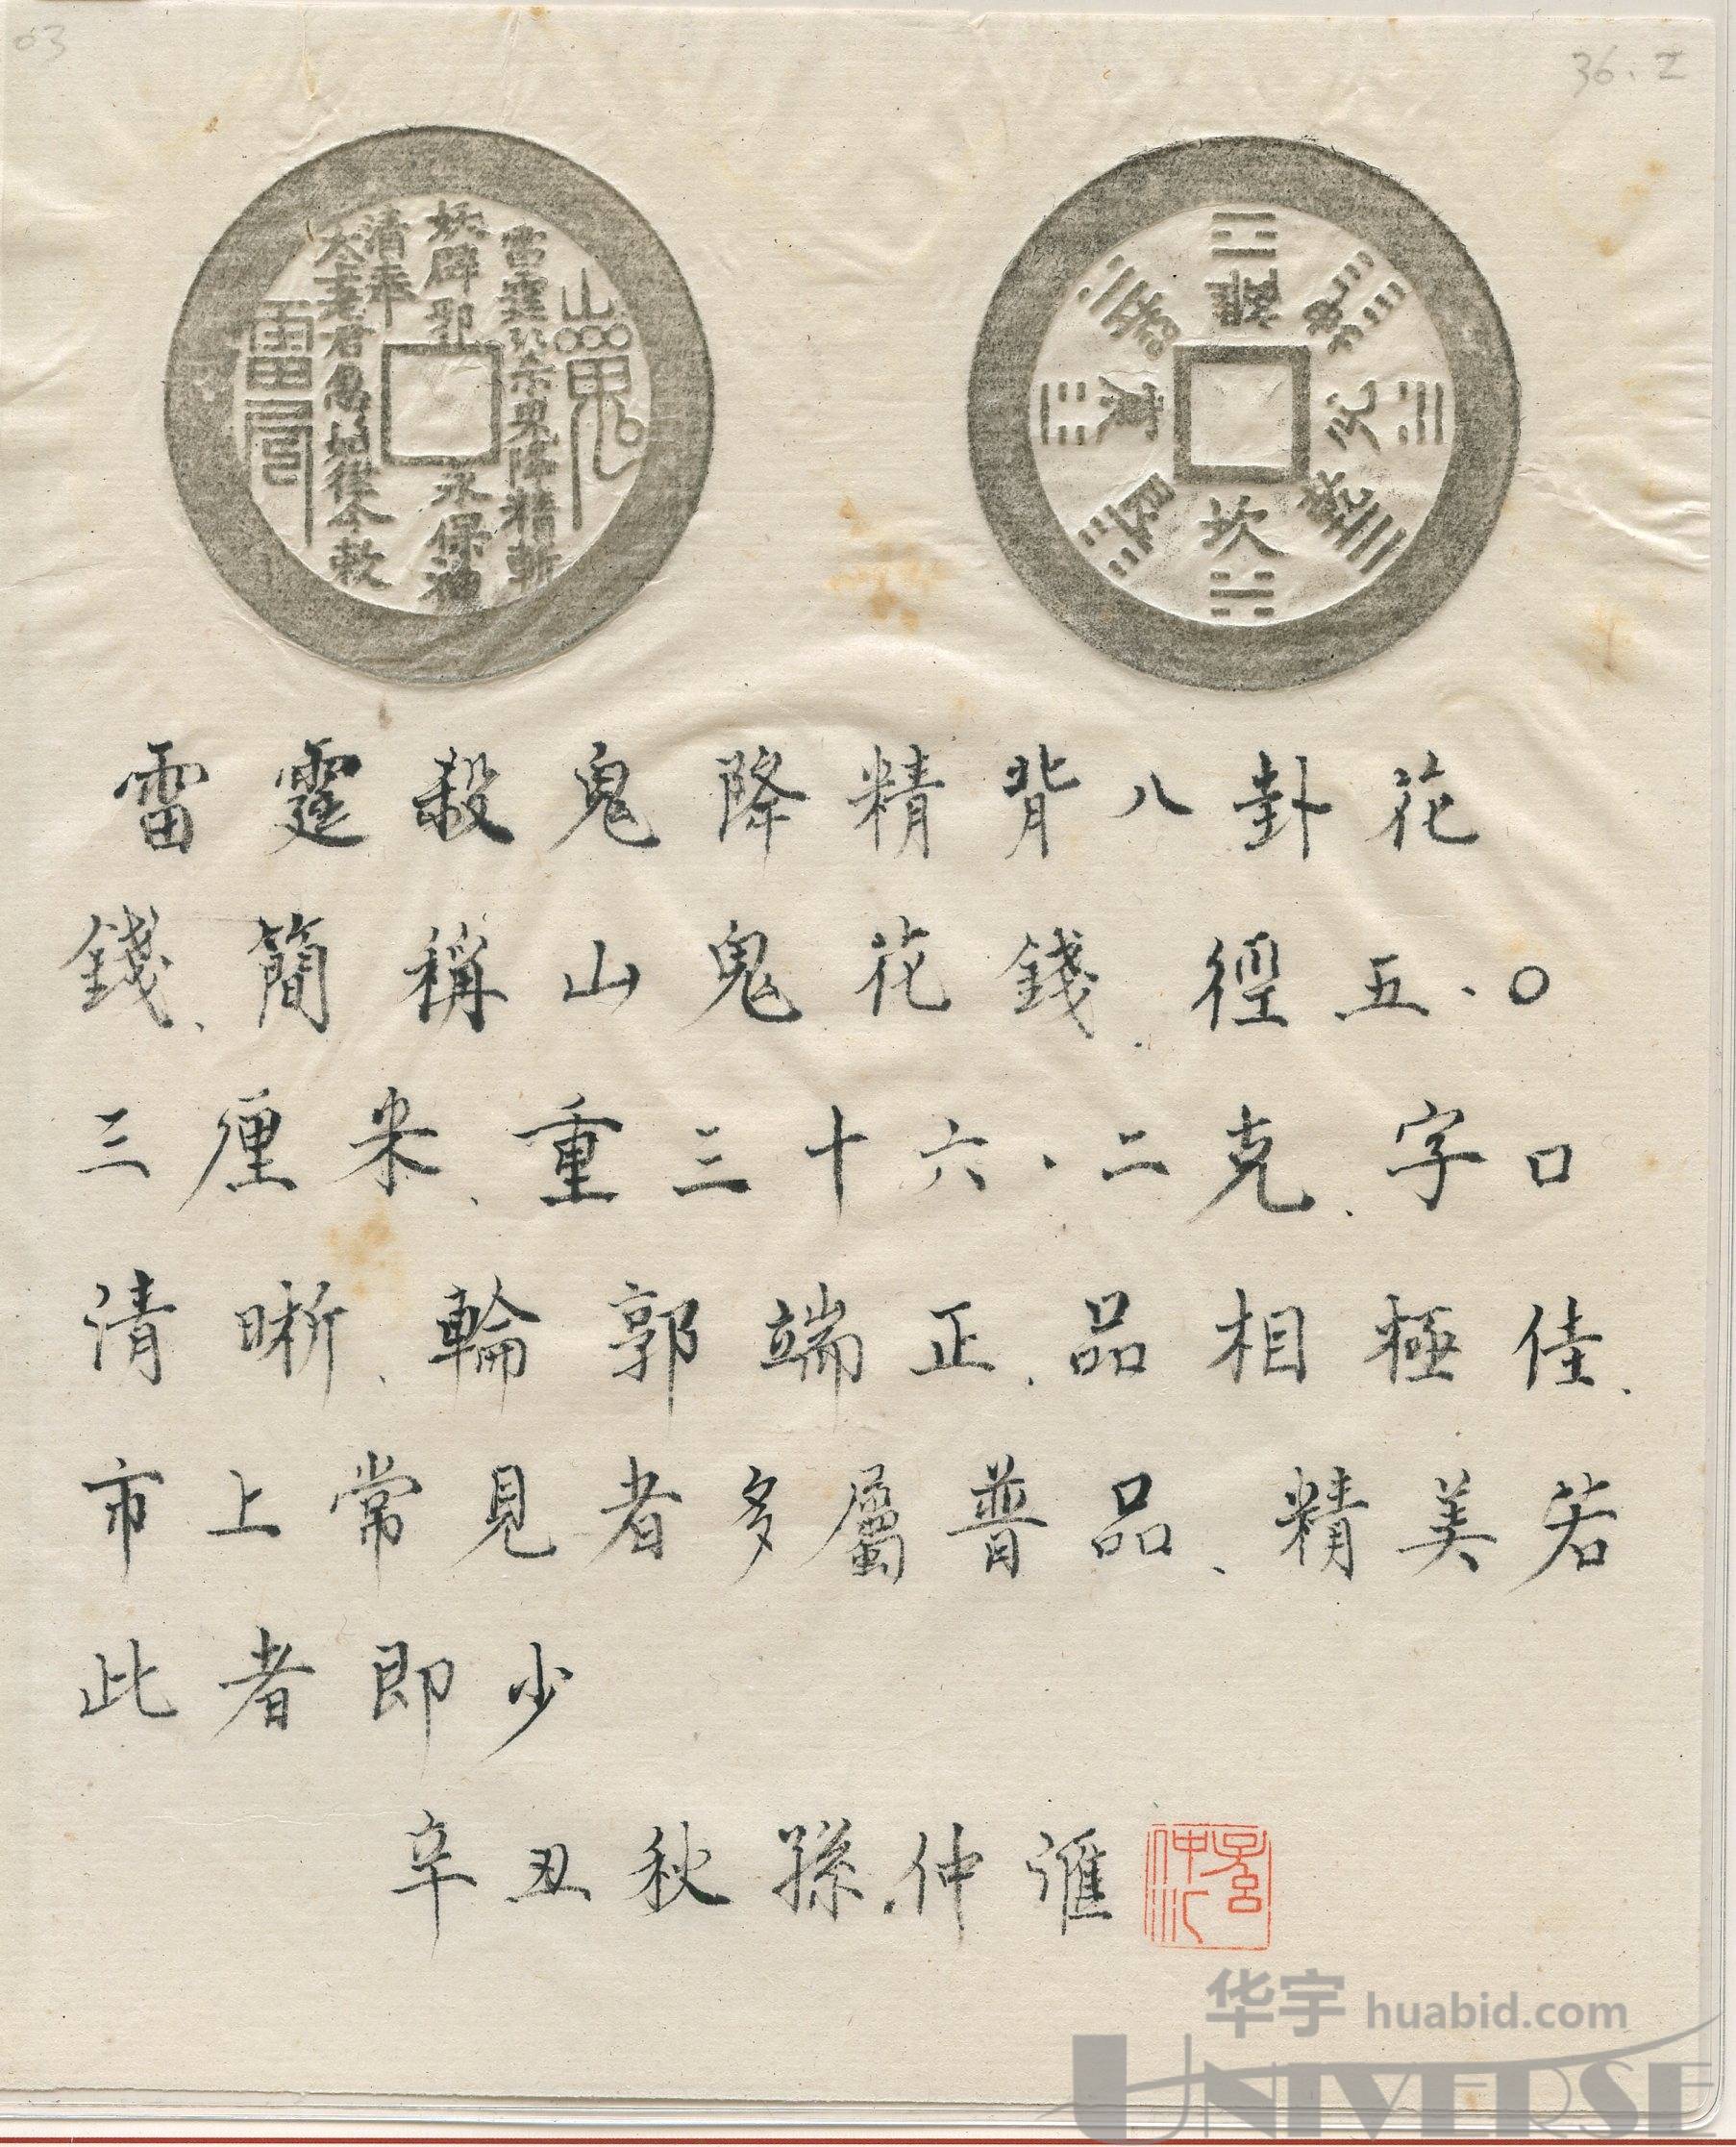 03
36.2
雷霆殺鬼降精斬
妖辟邪永保神
清奉
太上老君急如律令敕
離
坤
兌
乾
坎
艮
震
巽
雷霆殺鬼降精背八卦花
錢、簡稱山鬼花錢、徑五.〇
三厘米、重三十六.二克、字口
清晰、輪郭端正、品相極佳、
市上常見者多屬普品、精美若
此者即少
辛丑秋孫仲匯
孫仲匯
华宇 huabid.com
UNIVERSE